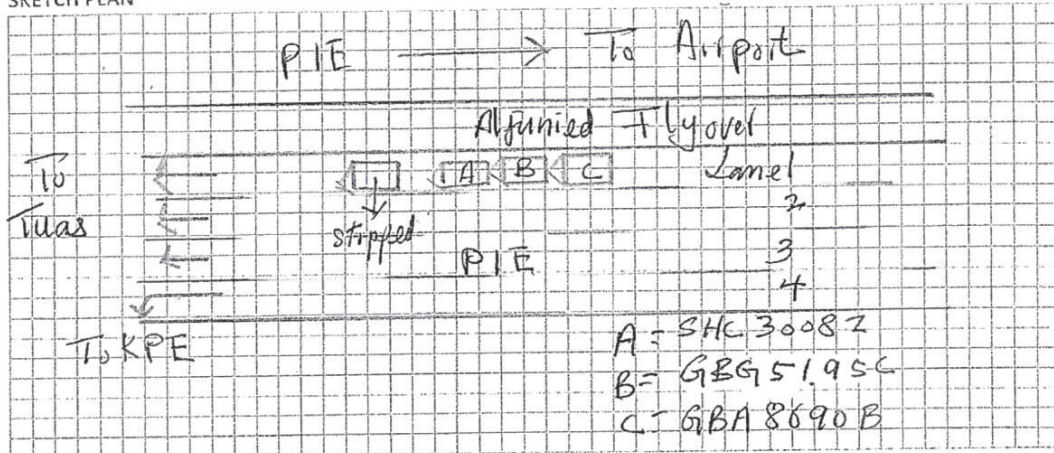 SKETCH PLAN
PIE → To Airport
Aljunied Flyover
To
Tuas
A B C
Lane 1
2
3
4
stopped
PIE
To KPE
A = SHC 3008Z
B = GBG 5195C
C = GBA 8690B